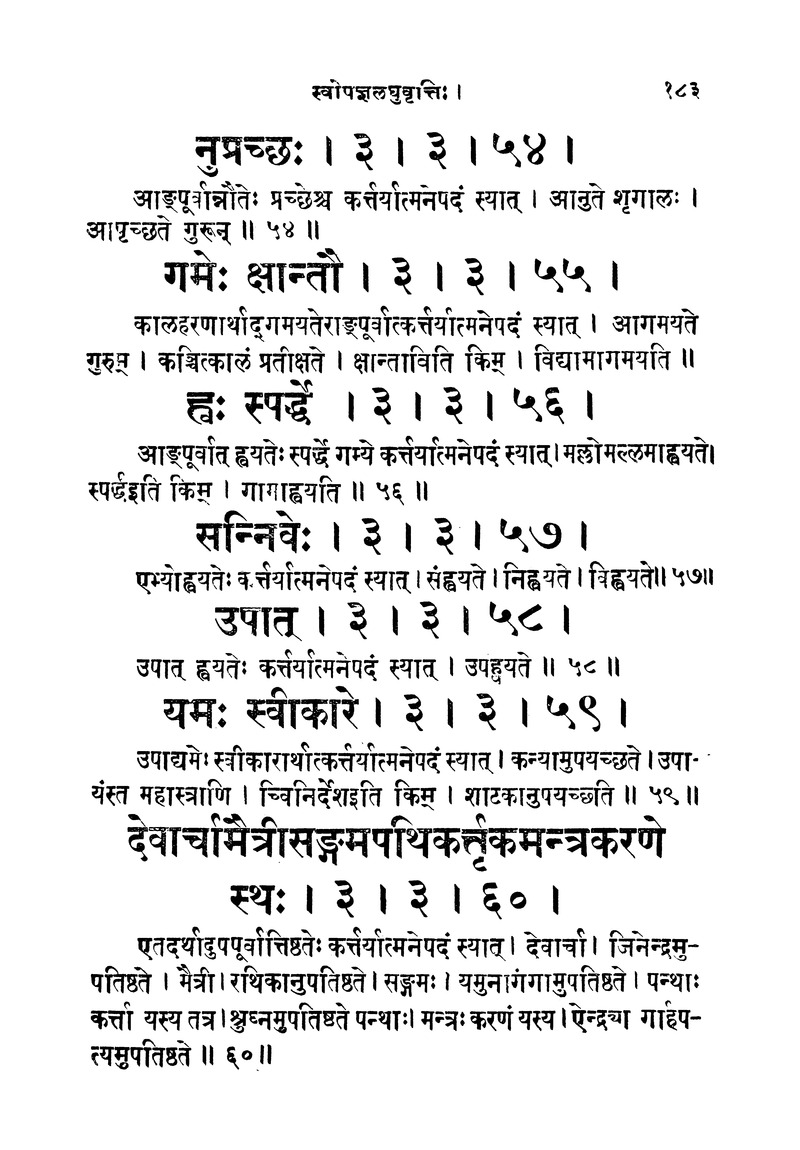 स्वोपज्ञलघुवृत्तिः ।
१८३
नुप्रच्छः । ३ । ३ । ५४ ।
आङ्पूर्वान्नौतेः प्रच्छेश्च कर्त्तर्यात्मनेपदं स्यात् । आनुते शृगालः ।
आपृच्छते गुरून् ॥ ५४ ॥
गमेः क्षान्तौ । ३ । ३ । ५५ ।
कालहरणार्थाद्गमयतेराङ्पूर्वात्कर्त्तर्यात्मनेपदं स्यात् । आगमयते
गुरुम् । कञ्चित्कालं प्रतीक्षते । क्षान्ताविति किम् । विद्यामागमयति ॥
ह्वः स्पर्द्धे । ३ । ३ । ५६ ।
आङ्पूर्वात् ह्वयतेः स्पर्द्धे गम्ये कर्त्तर्यात्मनेपदं स्यात् । मल्लोमल्लमाह्वयते।
स्पर्द्धइति किम् । गामाह्वयति ॥ ५६ ॥
सन्निवेः । ३ । ३ । ५७ ।
एभ्योह्वयतेः कर्त्तर्यात्मनेपदं स्यात् । संह्वयते । निह्वयते । विह्वयते॥ ५७॥
उपात् । ३ । ३ । ५८ ।
उपात् ह्वयतेः कर्त्तर्यात्मनेपदं स्यात् । उपह्वयते ॥ ५८ ॥
यमः स्वीकारे । ३ । ३ । ५९ ।
उपाद्यमेः स्वीकारार्थात्कर्त्तर्यात्मनेपदं स्यात् । कन्यामुपयच्छते । उपा-
यंस्त महास्त्राणि । च्विनिर्देशइति किम् । शाटकानुपयच्छति ॥ ५९ ॥
देवार्चामैत्रीसङ्गमपथिकर्त्तृकमन्त्रकरणे
स्थः । ३ । ३ । ६० ।
एतदर्थादुपपूर्वात्तिष्ठतेः कर्त्तर्यात्मनेपदं स्यात् । देवार्चा । जिनेन्द्रमु-
पतिष्ठते । मैत्री । रथिकानुपतिष्ठते । सङ्गमः । यमुनागंगामुपतिष्ठते । पन्थाः
कर्त्ता यस्य तत्र । श्रुघ्नमुपतिष्ठते पन्थाः। मन्त्रः करणं यस्य । ऐन्द्र्या गार्हप-
त्यमुपतिष्ठते ॥ ६० ॥